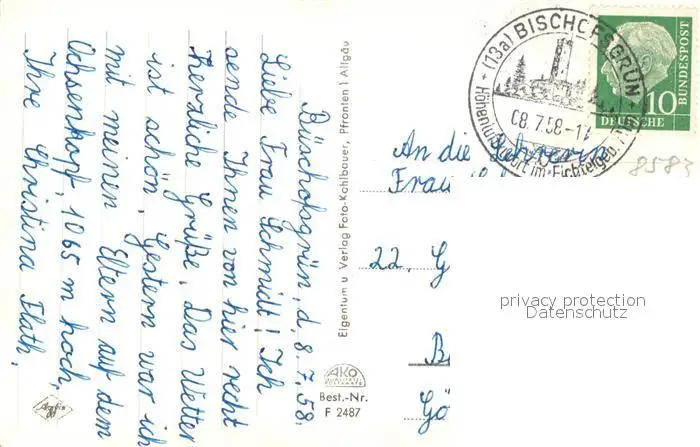 Büschofsgrün, d. 8.7.58.
Liebe Frau Schmidt! Ich
sende Ihnen von hier recht
herzliche Grüße. Das Wetter
ist schön. Gestern war ich
mit meinen Eltern auf dem
Ochsenkopf, 1065 m hoch.
Ihre Christina Flath.
Eigentum u. Verlag Foto-Kohlbauer, Pfronten i. Allgäu
AKO
Best.-Nr.
F 2487
Agfa
(13a) BISCHOFSGRÜN
08.7.58-17
Höhenluftkurort im Fichtelgeb.
10
DEUTSCHE BUNDESPOST
8583
An die Lehrerin
Frau
22. G
B
Gö
privacy protection
Datenschutz